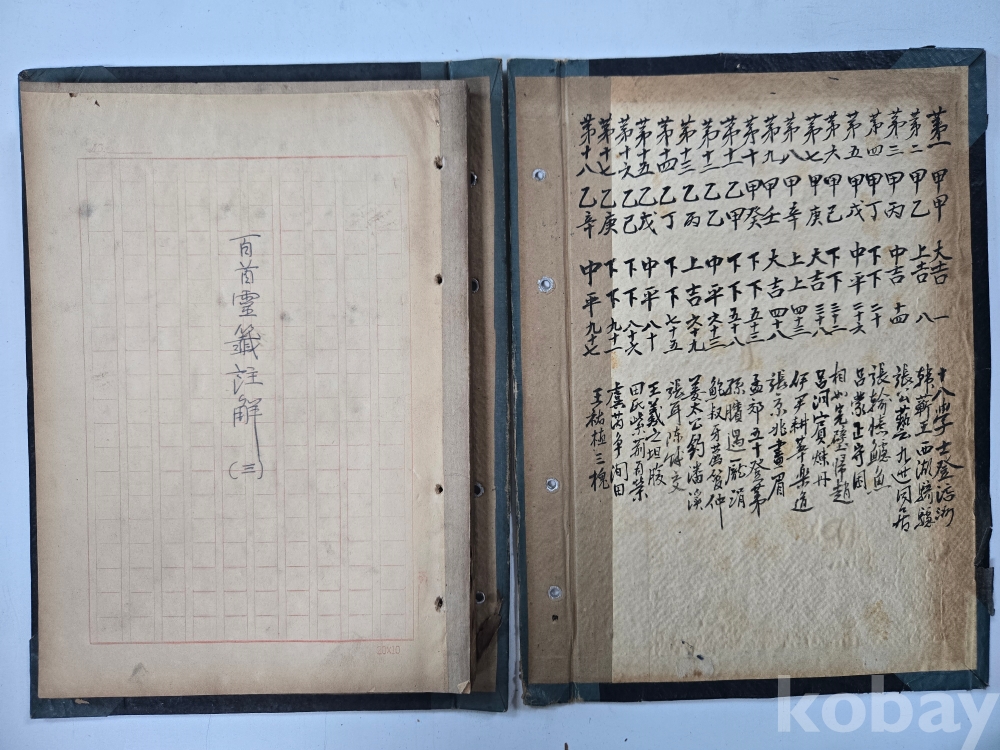 百首靈籤註解(三)
20X10
第一 甲甲 大吉 一 十八學士登瀛洲
第二 甲乙 上吉 八 韓蘄王西湖騎驢
第三 甲丙 中吉 十四 張公藝九世同居
第四 甲丁 下下 二十 張翰憶鱸魚
第五 甲戊 中平 二十六 呂蒙正守困
第六 甲己 下下 三十二 相如完璧歸趙
第七 甲庚 大吉 三十八 呂洞賓煉丹
第八 甲辛 上上 四十三 伊尹耕莘樂道
第九 甲壬 大吉 四十八 張京兆畫眉
第十 甲癸 下下 五十三 孟郊五十登第
第十一 乙甲 下下 五十八 孫臏遇龐涓
第十二 乙乙 中平 六十三 鮑叔牙薦管仲
第十三 乙丙 上吉 六十九 姜太公釣潘溪
第十四 乙丁 下下 七十五 張耳陳餘交
第十五 乙戊 中平 八十 王羲之坦腹
第十六 乙己 下下 八十六 田氏紫荊再榮
第十七 乙庚 下下 九十一 虞芮爭田
第十八 乙辛 中平 九十七 王祐植三槐
kobay